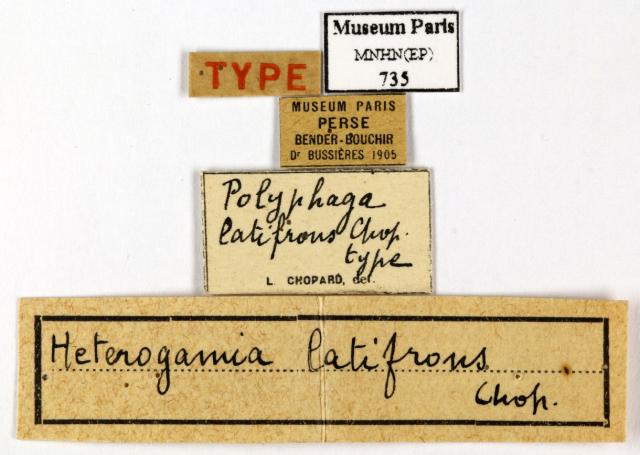 Museum Paris
MNHN(EP)
735
TYPE
MUSEUM PARIS
PERSE
BENDER-BOUCHIR
Dr BUSSIÈRES 1905
Polyphaga
latifrons Chop.
type
L. CHOPARD, det.
Heterogamia latifrons
Chop.